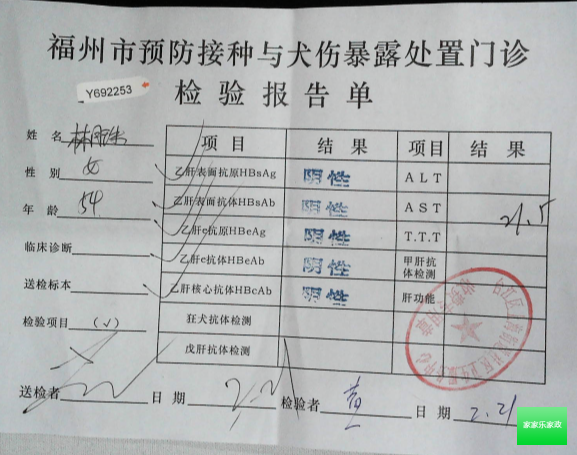 福州市预防接种与犬伤暴露处置门诊
检验报告单
Y692253
姓名
性别 女
年龄 54
临床诊断
送检标本
检验项目 (√)
项目 结果 项目 结果
乙肝表面抗原HBsAg 阴性 ALT
乙肝表面抗体HBsAb 阴性 AST 21.5
乙肝e抗原HBeAg 阴性 T.T.T
乙肝e抗体HBeAb 阴性 甲肝抗
体检测
乙肝核心抗体HBcAb 阴性 肝功能
狂犬抗体检测
戊肝抗体检测
送检者 日期 2.21 检验者 日期 2.21
家家乐家政